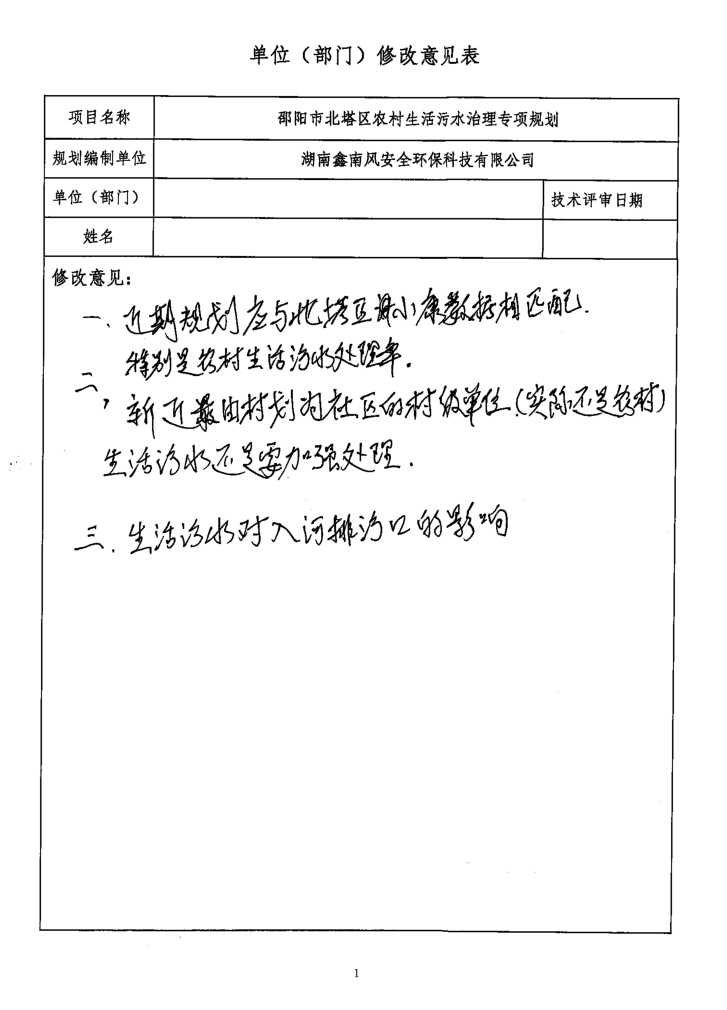 单位（部门）修改意见表
项目名称 邵阳市北塔区农村生活污水治理专项规划
规划编制单位 湖南鑫南风安全环保科技有限公司
单位（部门） 技术评审日期
姓名
修改意见：
一、近期规划应与北塔区小康数据相匹配.
特别是农村生活污水处理率.
二、新近最由村划为社区的村级单位(实际还是农村)
生活污水还是要加强处理.
三、生活污水对入河排污口的影响
1